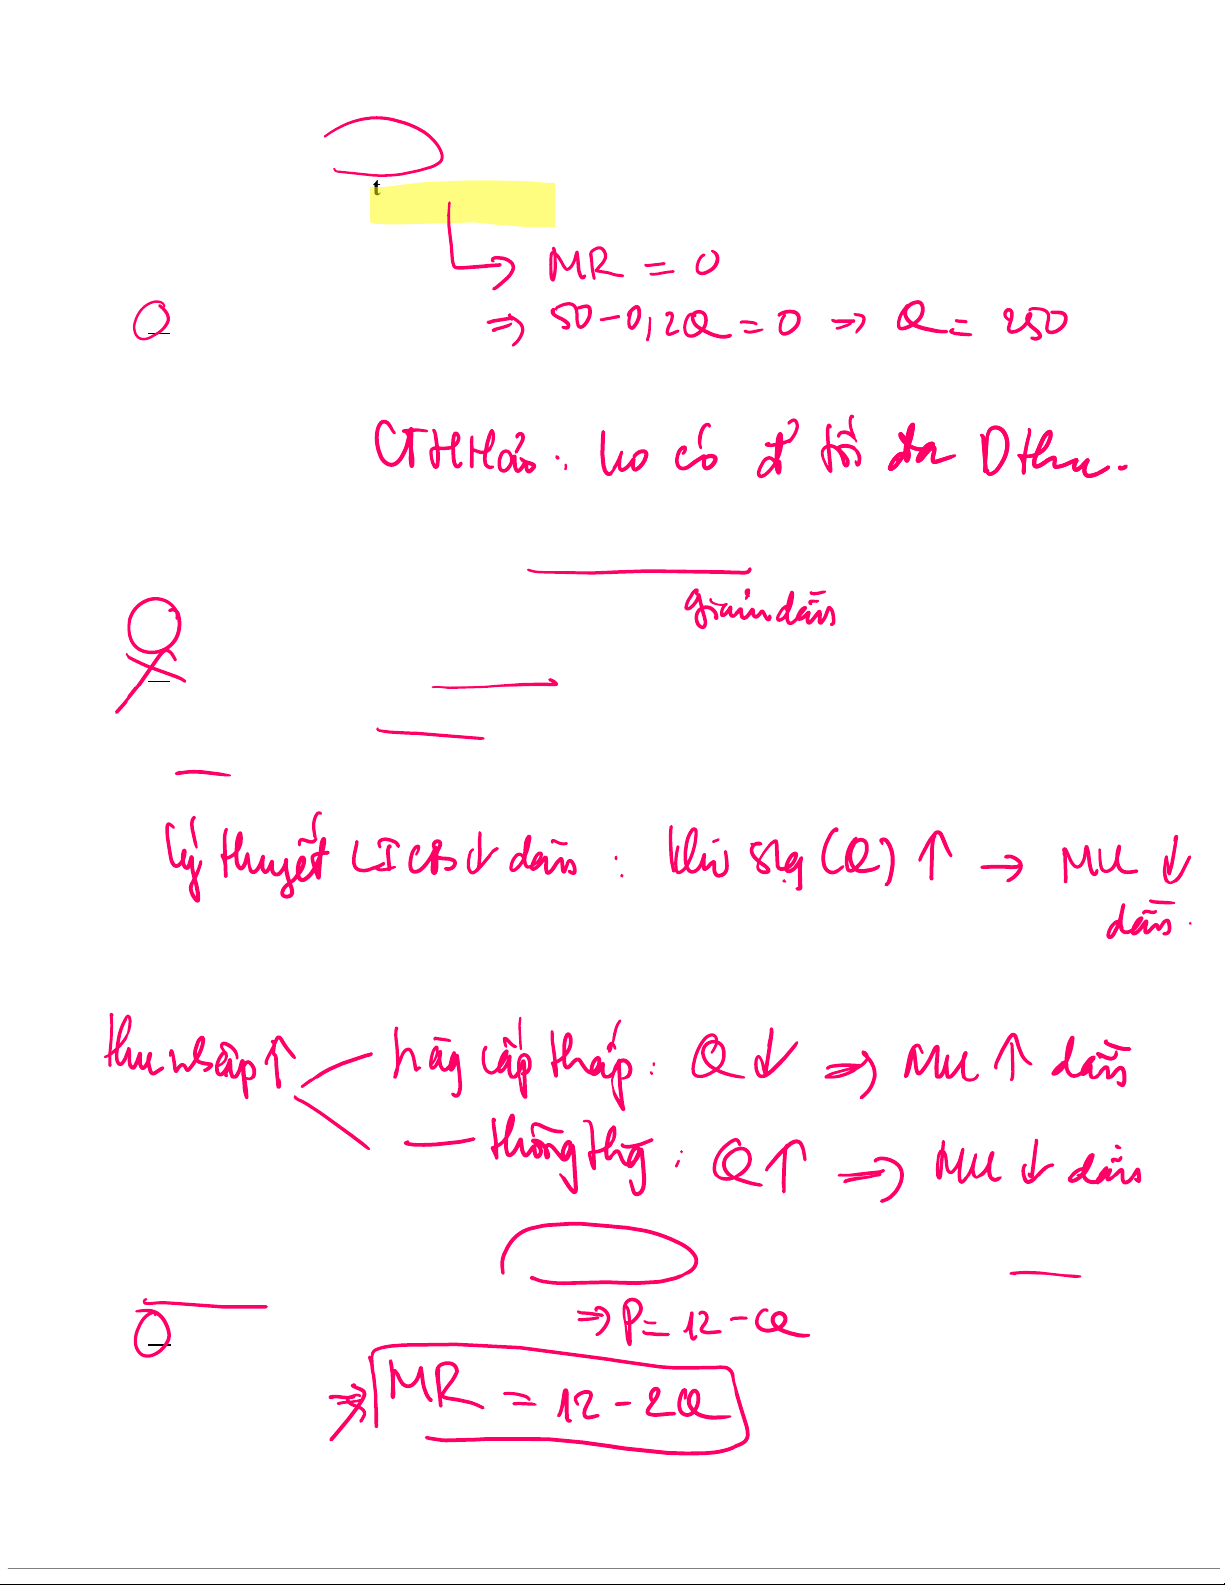 t
→ MR = 0
⇒ 50 - 0,2Q = 0 ⇒ Q = 250
CTHHảo: ko có đ² tối đa Dthu.
giảm dần
lý thuyết LICB ↓ dần : khi slg (Q) ↑ → MU ↓
dần.
thu nhập ↑
hàg cấp thấp : Q ↓ ⇒ MU ↑ dần
— thông thg : Q ↑ ⇒ MU ↓ dần
⇒ P = 12 - Q
⇒ MR = 12 - 2Q